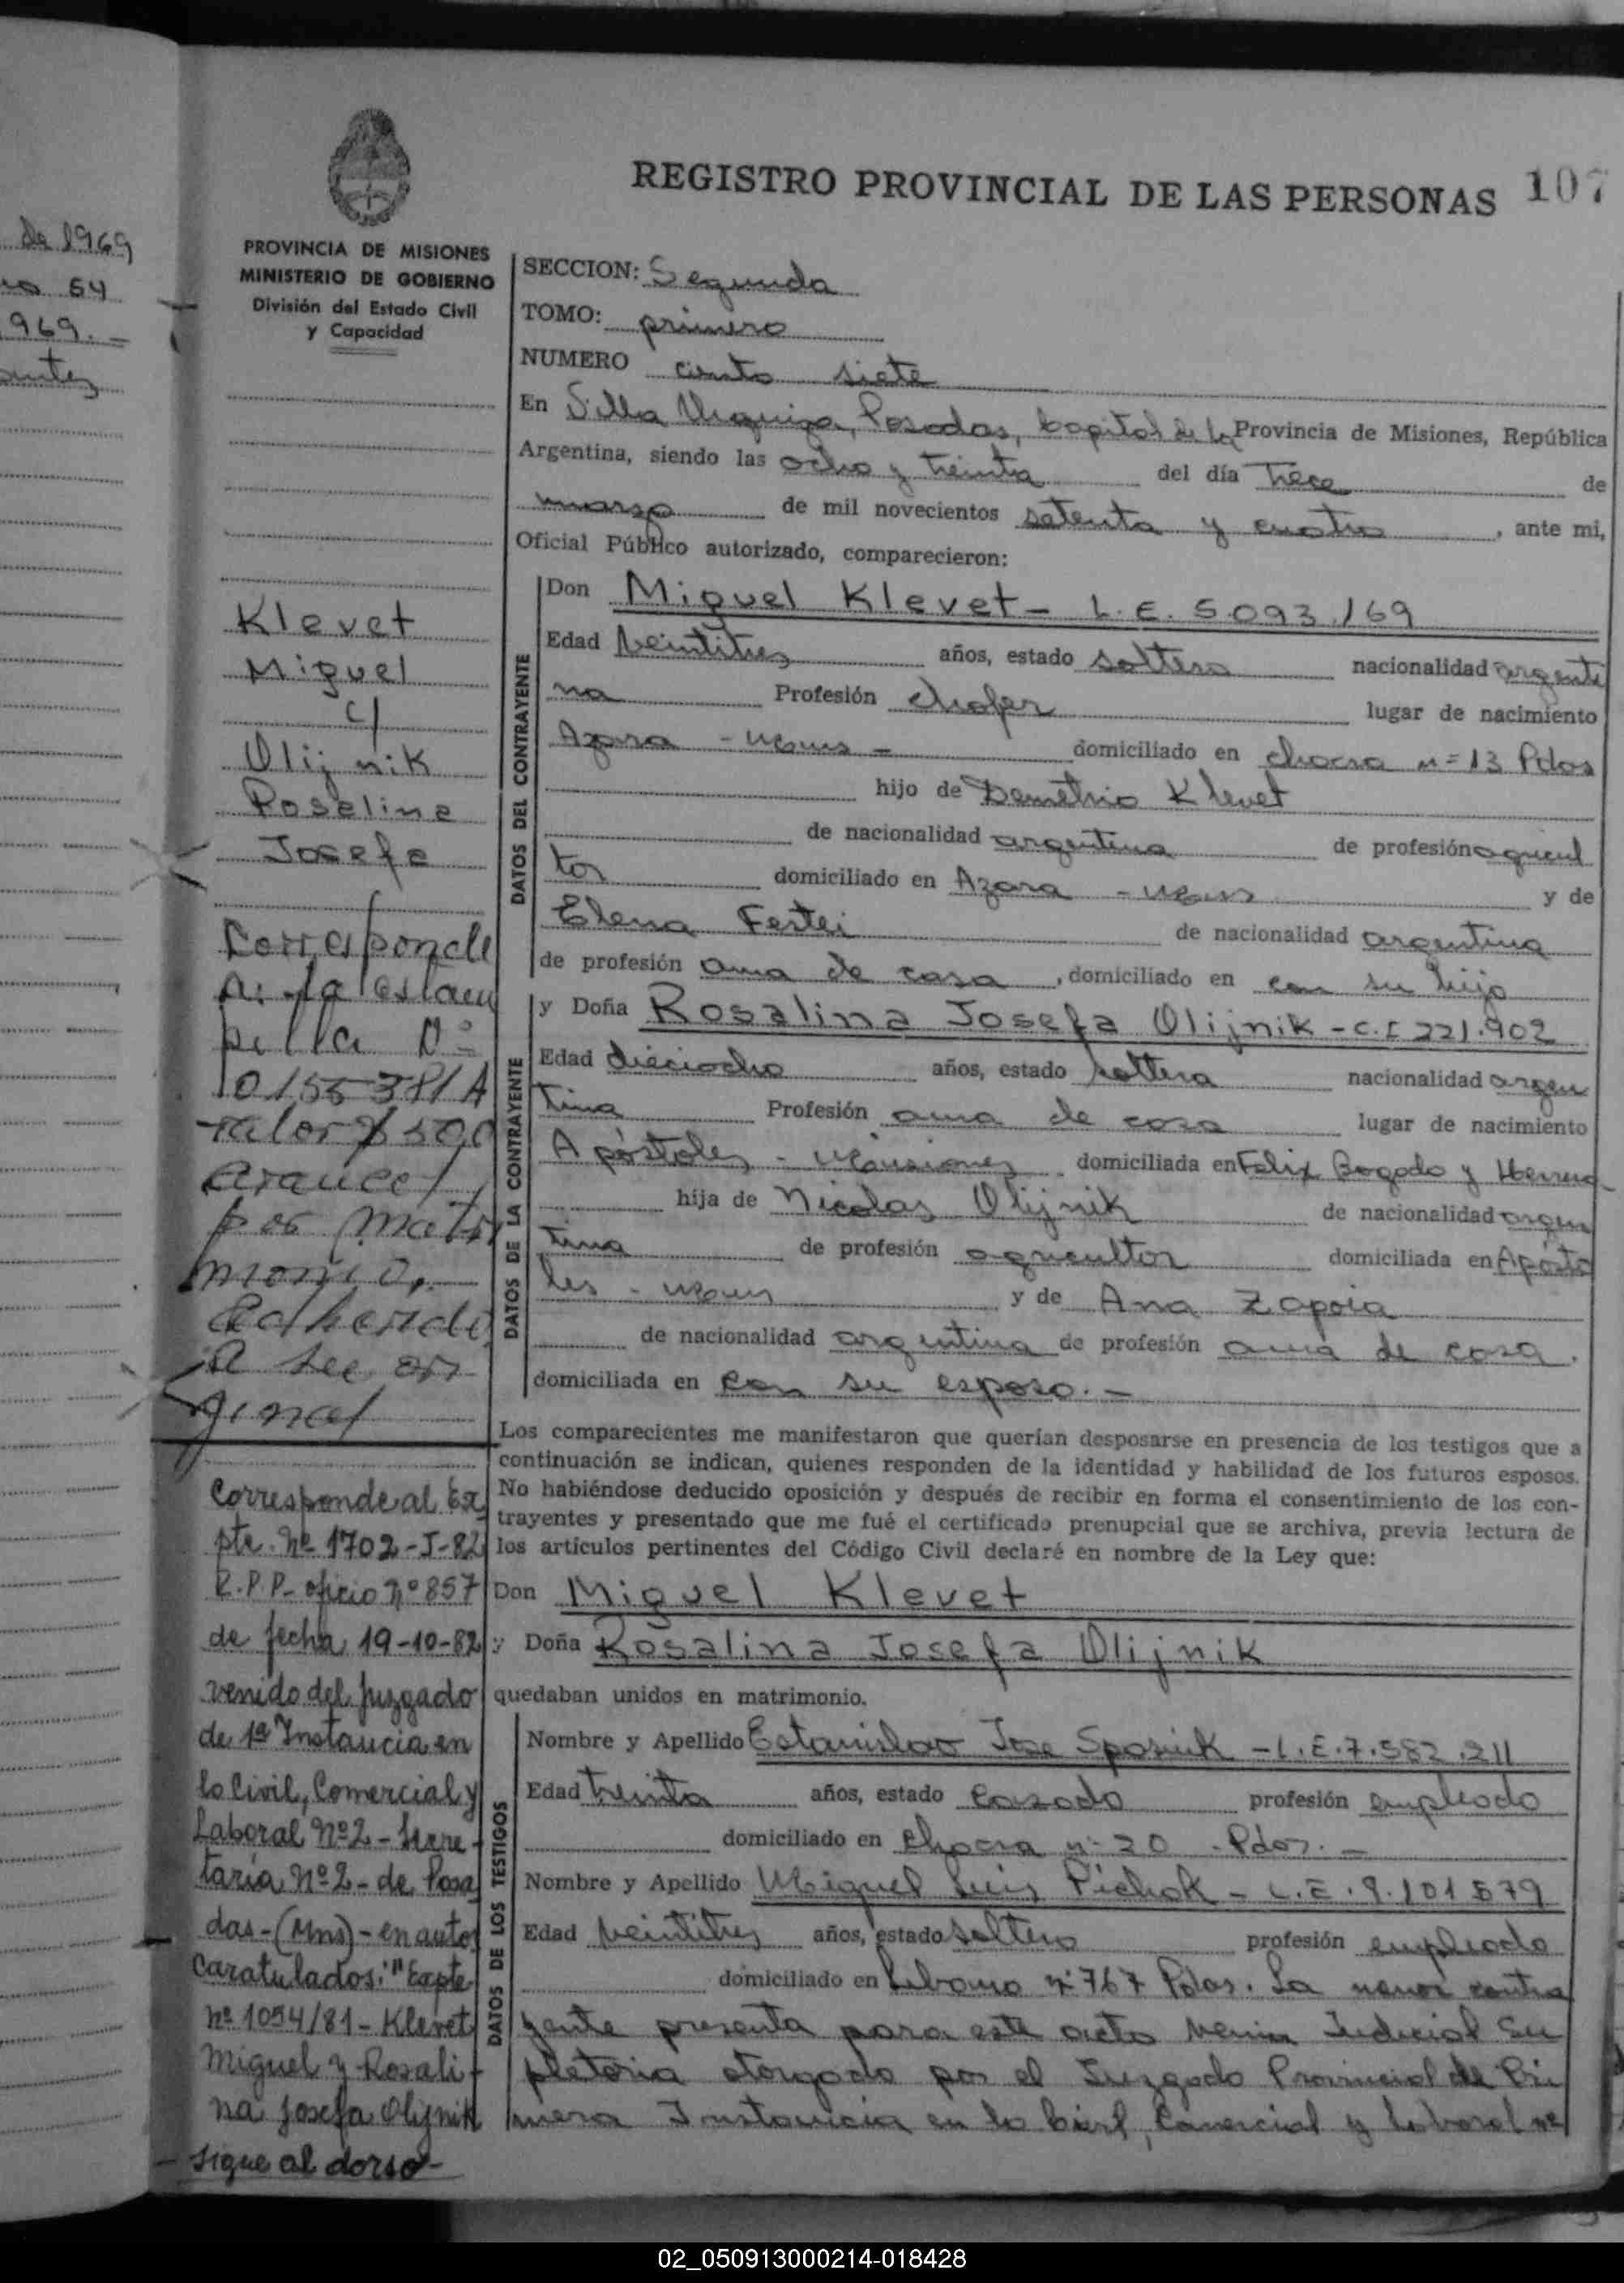 de 1969
54
969.-
107
REGISTRO PROVINCIAL DE LAS PERSONAS
PROVINCIA DE MISIONES
MINISTERIO DE GOBIERNO
División del Estado Civil
y Capacidad
Klevet
Miguel
c/
Olijnik
Roselina
Josefa
Corresponde
a la estam
pilla Nº
0155381A
valor $ 500
arancel
por matri
monio,
adherida
a su ori
ginal
Corresponde al Ex
pte. Nº 1702-J-82
R.P.P- oficio Nº 857
de fecha 19-10-82
venido del Juzgado
de 1ª Instancia en
lo Civil, Comercial y
Laboral Nº 2 - Secre
taría Nº 2 - de Posa
das - (Mns) - en autos
Caratulados: "Expte
nº 1054/81 - Klevet
Miguel y Rosali-
na Josefa Olijnik
- sigue al dorso -
SECCION: Segunda
TOMO: primero
NUMERO ciento siete
En Villa Urquiza, Posadas, Capital de la Provincia de Misiones, República
Argentina, siendo las ocho y treinta del día trece de
marzo de mil novecientos setenta y cuatro, ante mi,
Oficial Público autorizado, comparecieron:
DATOS DEL CONTRAYENTE
Don Miguel Klevet - L.E. 5.093.169
Edad veintitres años, estado soltero nacionalidad argenti
na Profesión chofer lugar de nacimiento
Azara - Mnes - domiciliado en chacra nº 13 Pdas
hijo de Demetrio Klevet
de nacionalidad argentina de profesión agricul
tor domiciliado en Azara - Mnes y de
Elena Fertei de nacionalidad argentina
de profesión ama de casa, domiciliado en con su hijo
DATOS DE LA CONTRAYENTE
y Doña Rosalina Josefa Olijnik - C.I 221.902
Edad dieciocho años, estado soltera nacionalidad argen
tina Profesión ama de casa lugar de nacimiento
Apóstoles - Misiones domiciliada en Felix Bogado y
hija de Nicolas Olijnik de nacionalidad argen
tina de profesión agricultor domiciliada en Apósto
les - Mnes y de Ana Zapoia
de nacionalidad argentina de profesión ama de casa.
domiciliada en con su esposo. -
Los comparecientes me manifestaron que querían desposarse en presencia de los testigos que a
continuación se indican, quienes responden de la identidad y habilidad de los futuros esposos.
No habiéndose deducido oposición y después de recibir en forma el consentimiento de los con-
trayentes y presentado que me fué el certificado prenupcial que se archiva, previa lectura de
los artículos pertinentes del Código Civil declaré en nombre de la Ley que:
Don Miguel Klevet
y Doña Rosalina Josefa Olijnik
quedaban unidos en matrimonio.
DATOS DE LOS TESTIGOS
Nombre y Apellido Estanislao Jose Sposnik - L.E. 7.582.211
Edad treinta años, estado casado profesión empleado
domiciliado en chacra nº 20 - Pdas. -
Nombre y Apellido Miguel Luis Pichok - L.E. 8.101.579
Edad veintitres años, estado soltero profesión empleado
domiciliado en Libano nº 767 Pdas. La menor contra
yente presenta para este acto venia Judicial Su
pletoria otorgado por el Juzgado Provincial de Pri
mera Instancia en lo Civil, Comercial y Laboral nº
02_050913000214-018428